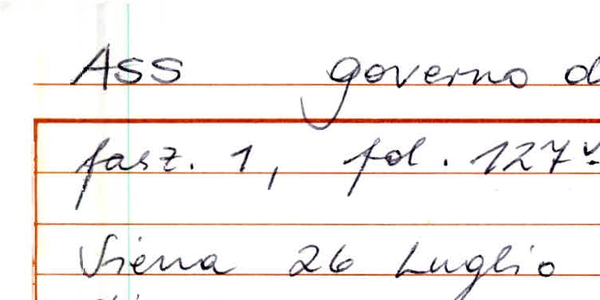 ASS governo d
fasz. 1, fol. 127v-
Siena 26 Luglio